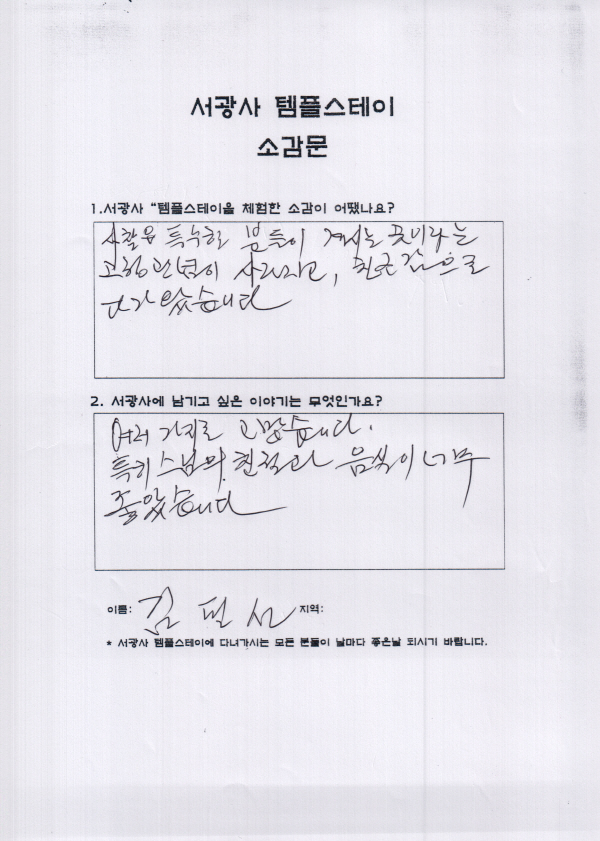 서광사 템플스테이
소감문
1.서광사 "템플스테이을 체험한 소감이 어땠나요?
사찰은 특수한 분들이 계시는 곳이라는
고정관념이 사라지고, 친근감으로
다가왔습니다
2. 서광사에 남기고 싶은 이야기는 무엇인가요?
여러 가지로 고맙습니다.
특히 스님의 친절과 음식이 너무
좋았습니다
이름: 김 필 선 지역:
* 서광사 템플스테이에 다녀가시는 모든 분들이 날마다 좋은날 되시기 바랍니다.